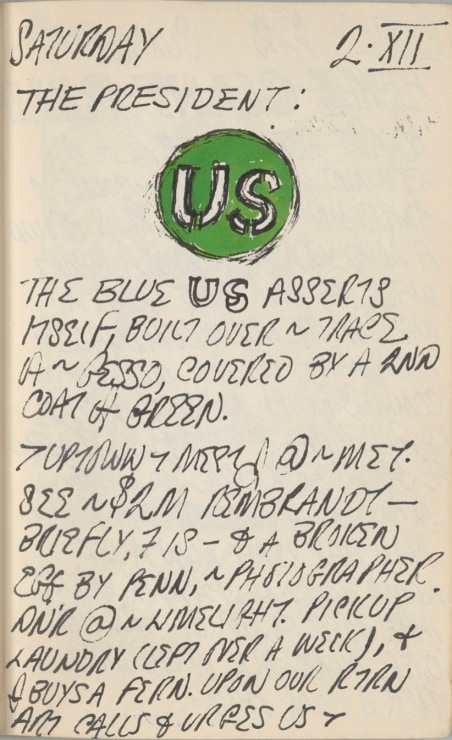 SATURDAY 2·XII
THE PRESIDENT:
US
THE BLUE US ASSERTS
ITSELF, BUILT OVER ~ TRACE
~ GESSO, COVERED BY A 2ND
COAT of GREEN.
UPTOWN @ ~ MET.
SEE ~ $2M REMBRANDT —
BRIEFLY, 7 IS — & A BROKEN
EGG BY PENN, ~ PHOTOGRAPHER.
DN'R @ ~ LIMELIGHT. PICKUP
LAUNDRY (LEFT OVER A WEEK), &
BUYS A FERN. UPON OUR RTRN
ART CALLS & URGES US